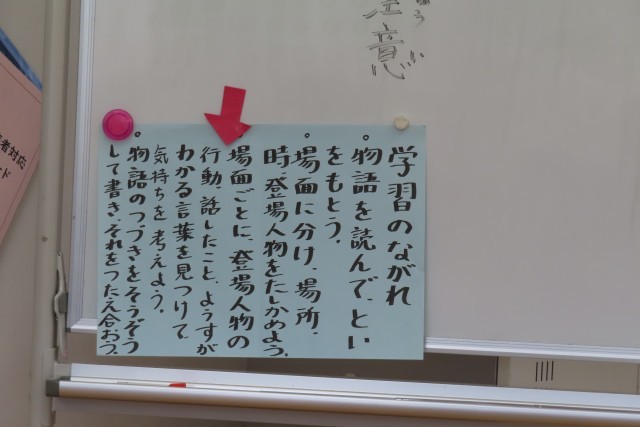 注意
学習のながれ
。物語を読んで、とい
をもとう。
。場面に分け、場所、
時、登場人物をたしかめよう。
。場面ごとに、登場人物の
行動、話したこと、ようすが
わかる言葉を見つけて
気持ちを考えよう。
。物語のつづきをそうぞう
して書き、それをつたえ合おう。
者対応
ード